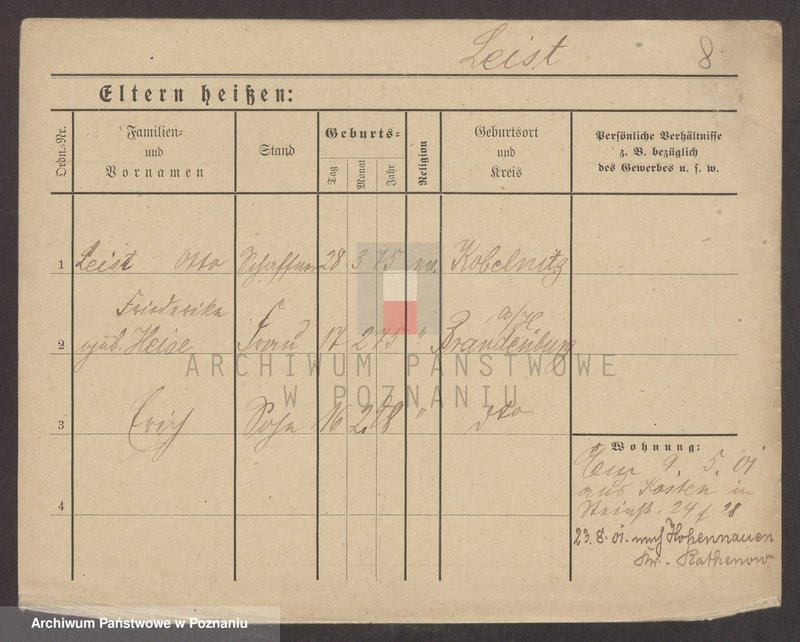 Leist 8
Eltern heißen:
Ordn.-Nr.
Familien-
und
Vornamen
Stand
Geburts-
Tag
Monat
Jahr
Religion
Geburtsort
und
Kreis
Persönliche Verhältnisse
z. B. bezüglich
des Gewerbes u. s. w.
1 Leist Otto Schaffner 28 3 75 ev. Kobelnitz
Friederika a/H
2 geb. Heise Frau 17 2 75 " Brandenburg
3 Erich Sohn 16 2 98 " dto
4
Wohnung:
9. 5. 01
aus Kosten in
24
23.8.01. nach Hohennauen
Kr. Rathenow
ARCHIWUM PAŃSTWOWE
W POZNANIU
Archiwum Państwowe w Poznaniu